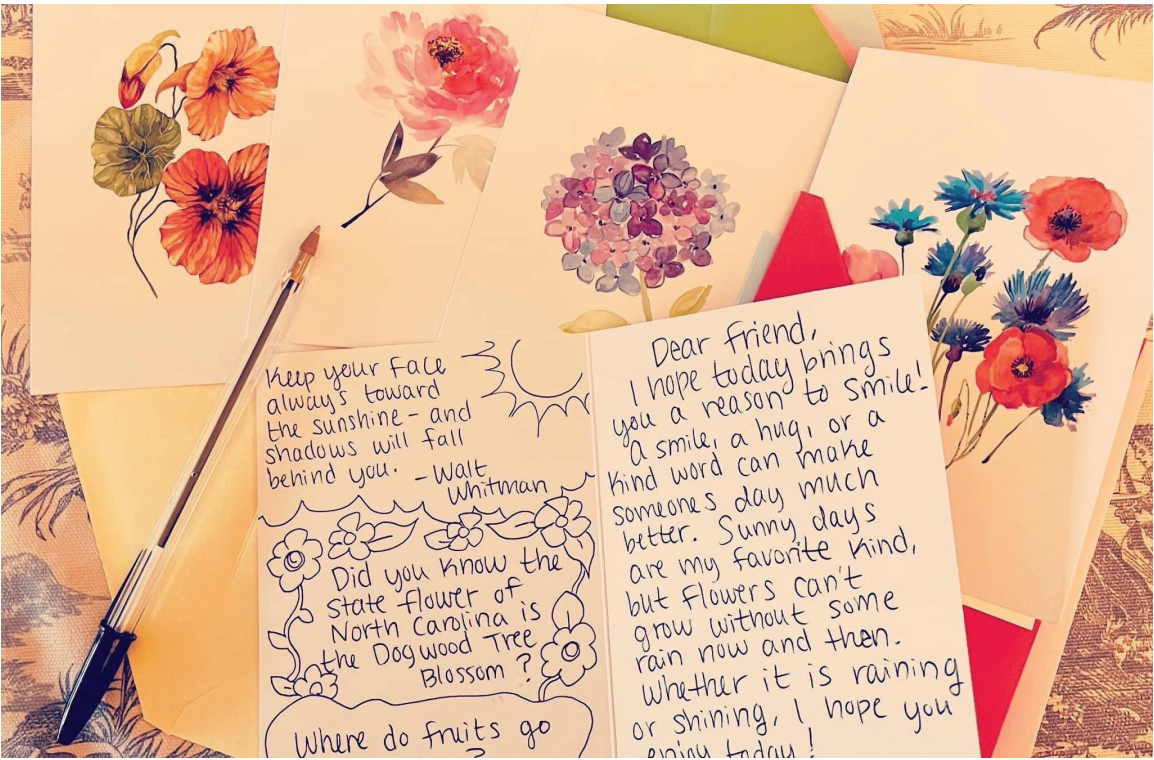 Keep your face
always toward
the sunshine - and
shadows will fall
behind you.
- Walt
Whitman
Did you know the
state flower of
North Carolina is
the Dogwood Tree
Blossom ?
Where do fruits go
?
Dear Friend,
I hope today brings
you a reason to smile!
A smile, a hug, or a
kind word can make
someones day much
better. Sunny days
are my favorite kind,
but flowers can't
grow without some
rain now and then.
Whether it is raining
or shining, I hope you
enjoy today!